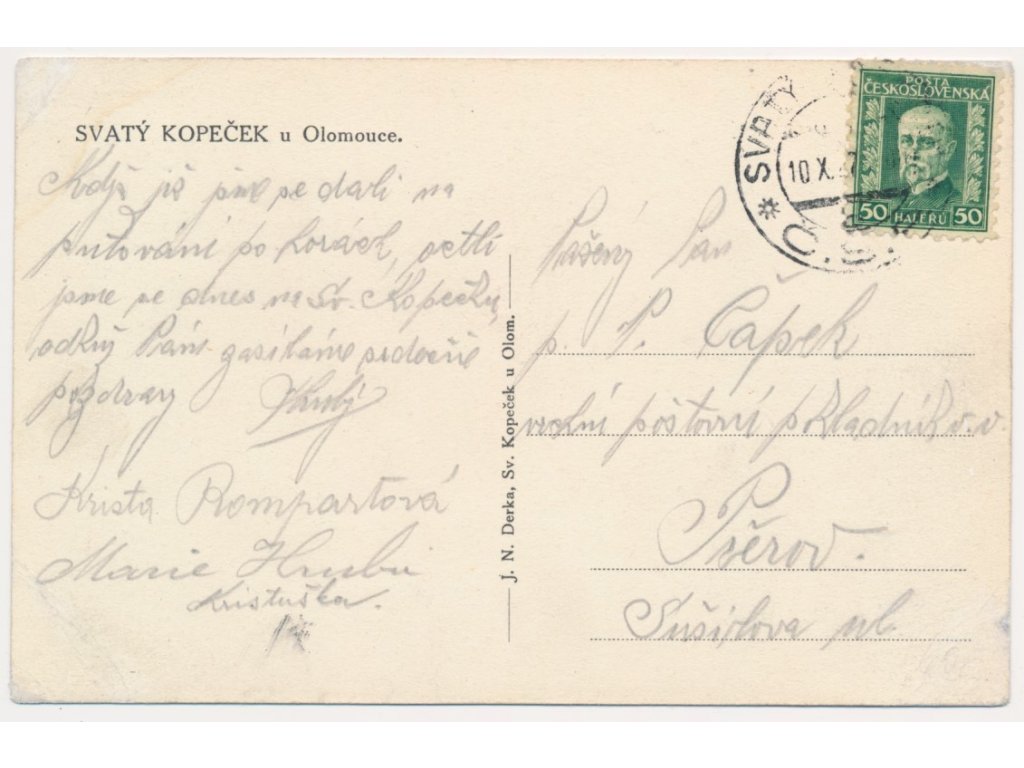 SVATÝ KOPEČEK u Olomouce.
Když již jsme se dali na
putování po horách, octli
jsme se dnes na Sv. Kopečku,
odkud Vám zasíláme srdečné
pozdravy Hrubý
Krista Rompartová
Marie Hrubá
Kristuška.
J. N. Derka, Sv. Kopeček u Olom.
POŠTA
ČESKOSLOVENSKÁ
50 HALÉŘŮ 50
* SVATÝ
10 X.
Vážený Pan
p. P. Čapek
vrchní poštovní pokladník v. v.
Přerov.
Sušilova ul.